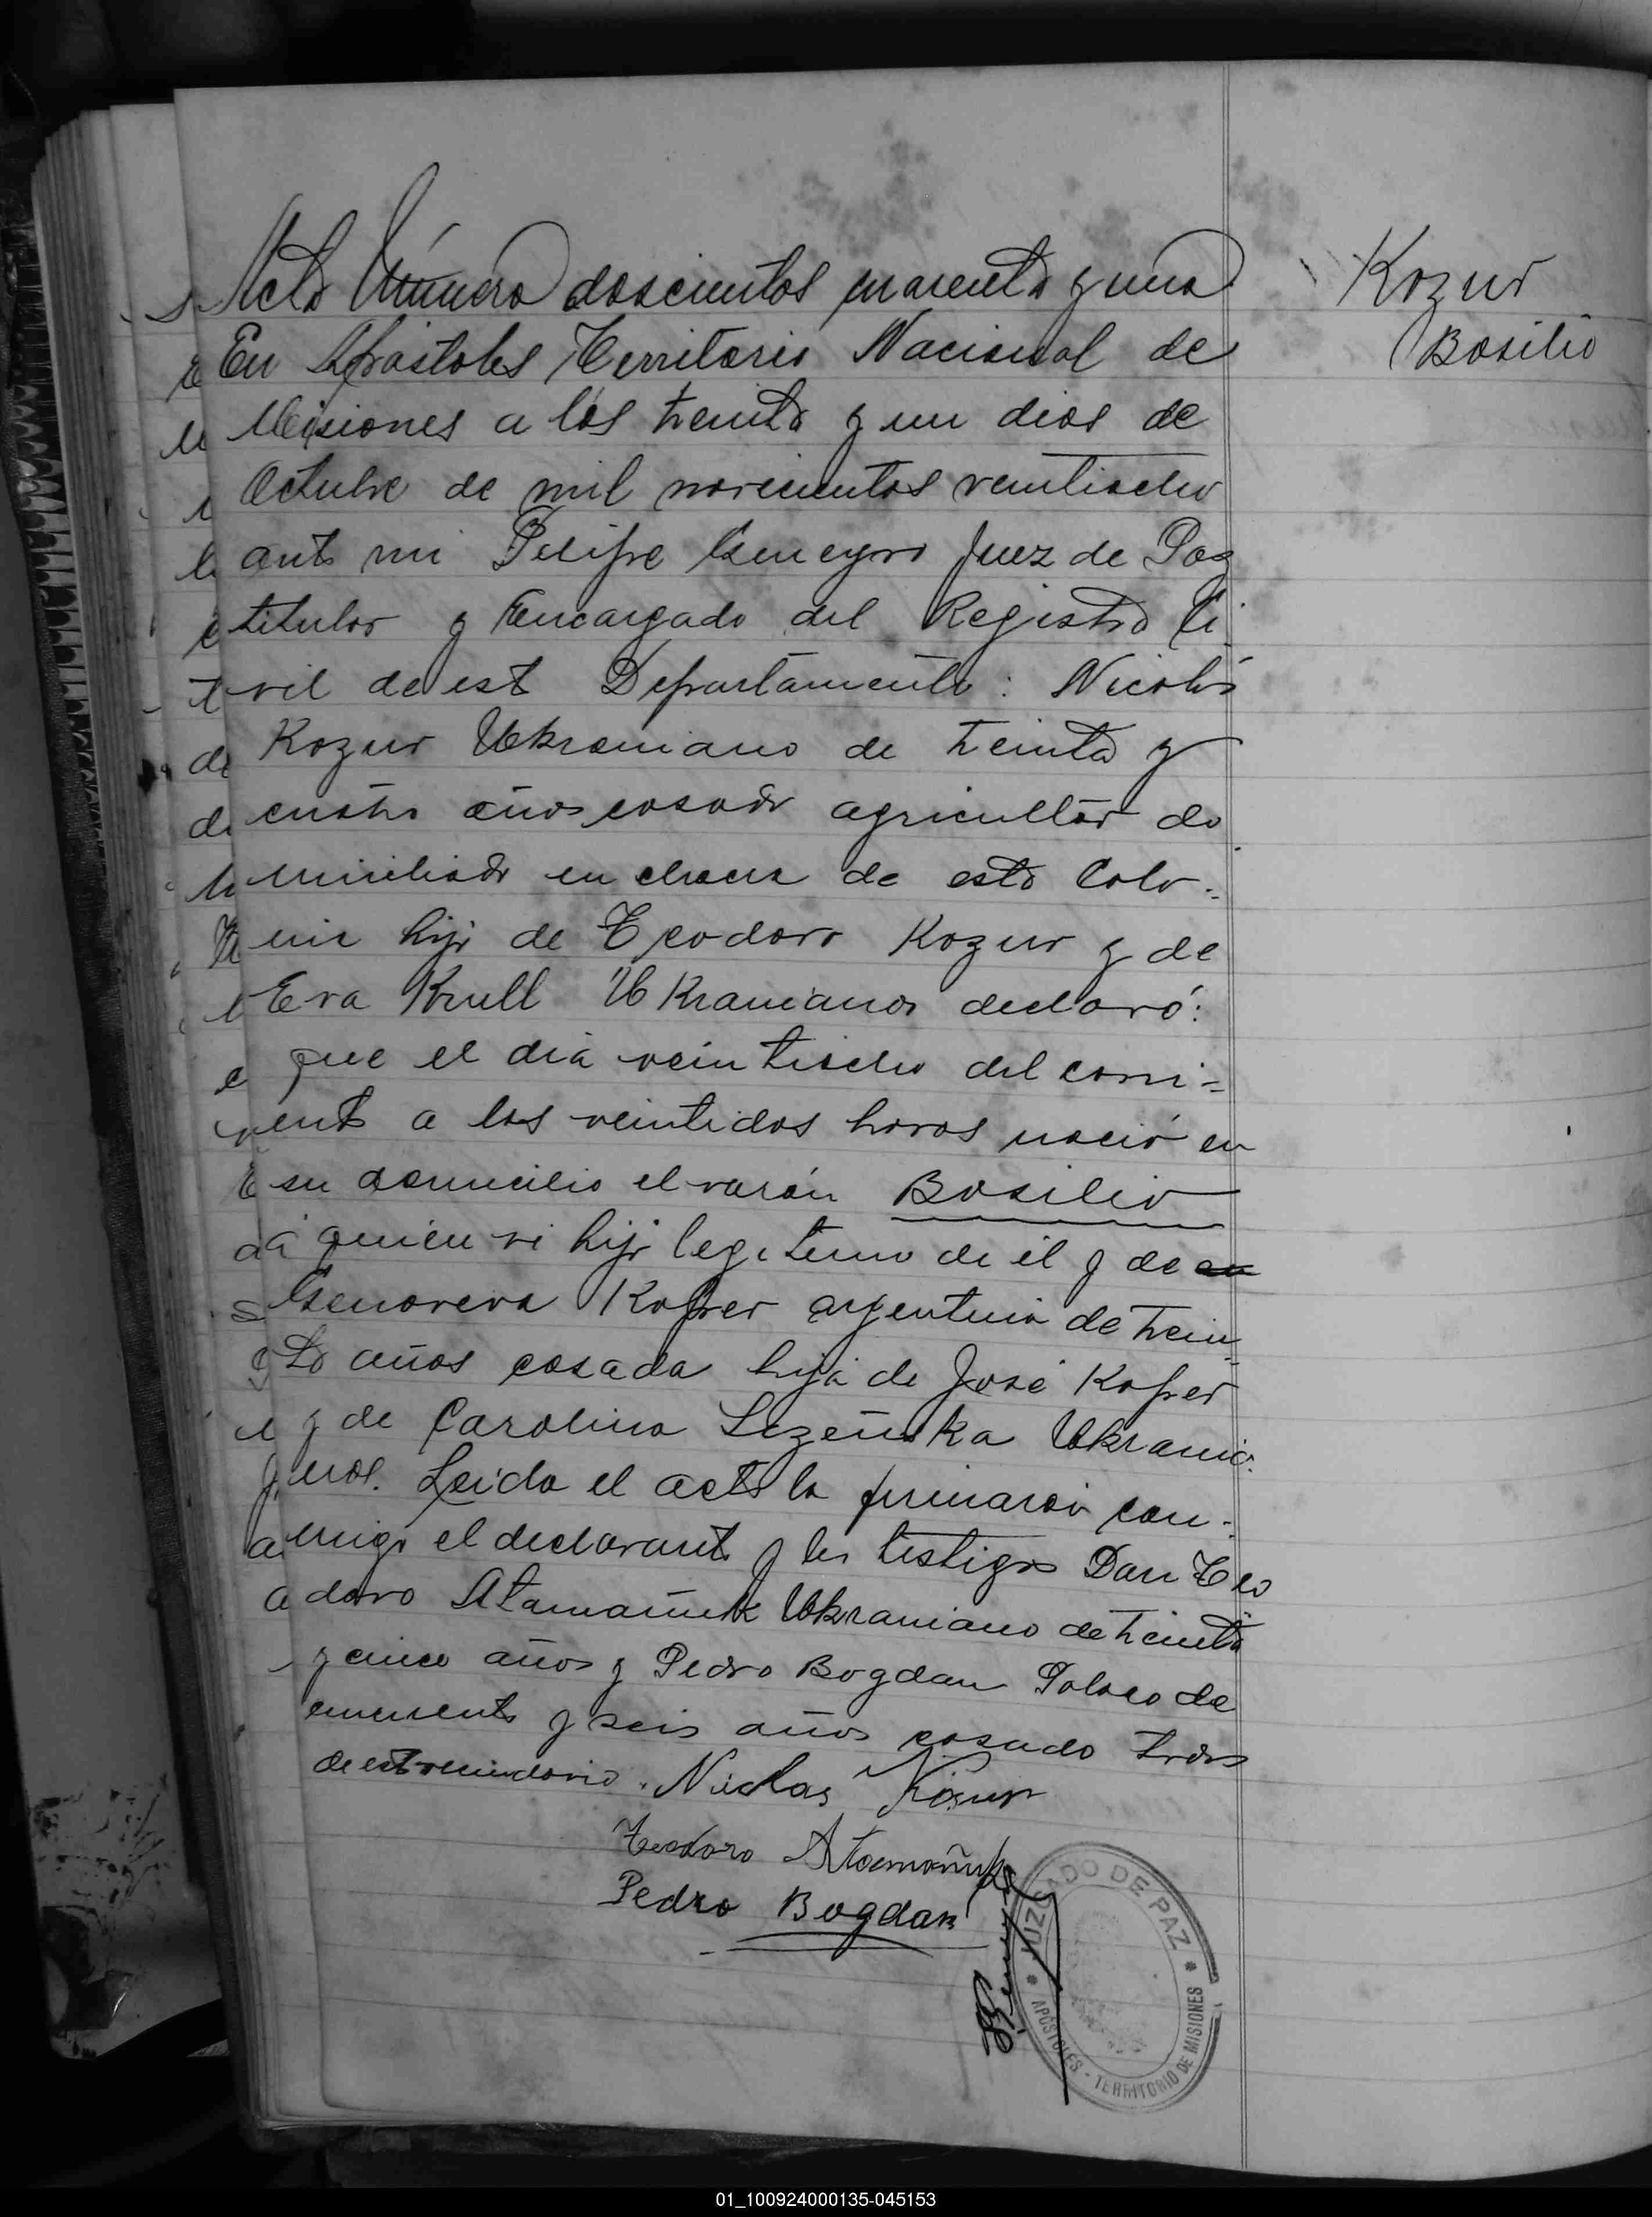 Acta Número doscientos cuarenta y una
Kozur
Basilio
En Apóstoles Territorio Nacional de
Misiones a los treinta y un dias de
Octubre de mil novecientos veintiocho
ante mi Felipe Geneyro Juez de Paz
titular y Encargado del Registro Ci
vil de este Departamento: Nicolás
Kozur Ukraniano de treinta y
cuatro años casado agricultor do
miciliado en chacra de esta Colo-
nia hijo de Teodoro Kozur y de
Eva Krull Ukranianos declaró:
que el dia veintiocho del corri-
ente a las veintidos horas nació en
su domicilio el varón Basilio
a quien vi hijo legitimo de él y de
Genoveva Koper argentina de trein
ta años casada hija de José Koper
y de Carolina Lezeñska Ukrania
nos. Leida el acta la firmaron con-
migo el declarante y los testigos Don Teo
doro Atamañuk Ukraniano de treinta
y cinco años y Pedro Bogdan Polaco de
cincuenta y seis años casado todos
de este vecindario. Nicolas Kosur
Teodoro Atamañuk
Pedro Bogdan
JUZGADO DE PAZ
APÓSTOLES - TERRITORIO DE MISIONES
01_100924000135-045153